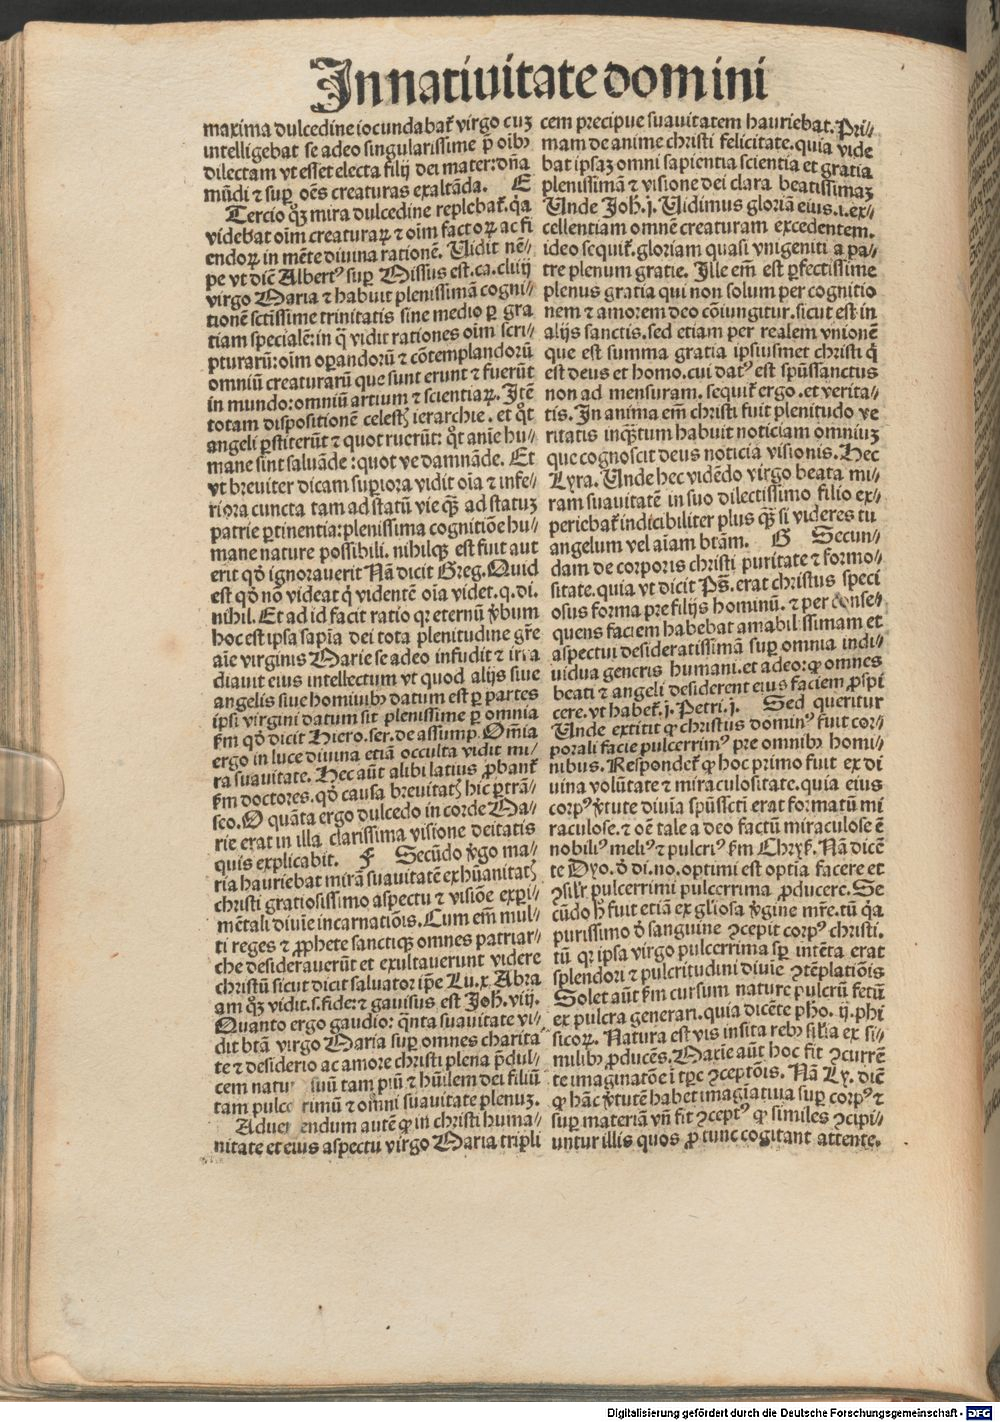 In nativitate domini
maxima dulcedine iocundabat᷑ virgo cuʒ
intelligebat se adeo singularissime p̄ oībꝫ
dilectam vt esset electa filij dei mater: dn̄a
mūdi ⁊ suꝑ oēs creaturas exaltāda. E
Tercio qͦꝫ mira dulcedine replebat᷑. q̄a
videbat oīm creaturaꝝ ⁊ oīm factoꝝ ac fi
endoꝝ in mēte divina rationē. Vidit nē⸗
pe vt dicē Albertꝰ suꝑ Missus est. ca. clvij
virgo Maria ⁊ habuit plenissimā cogni⸗
tionē sctīssime trinitatis sine medio ꝑ gra
tiam specialē: in q̄ vidit rationes oīm scri⸗
pturarū: oīm oꝑandorū ⁊ cōtemplandorū
omniū creaturarū que sunt erunt ⁊ fuerūt
in mundo: omniū artium ⁊ scientiaꝝ. Itē
totam dispositionē celestꝭ ierarchie. et qͦt
angeli ꝑstiterūt ⁊ quot ruerūt: qͦt anīe hu⸗
mane sint saluāde: quot ve damnāde. Et
vt breviter dicam suꝑiora vidit oīa ⁊ infe⸗
riora cuncta tam ad statū vie qꝫ̄ ad statuʒ
patrie ꝑtinentia: plenissima cognitiōe hu⸗
mane nature possibili. nihilqꝫ est fuit aut
erit qd̄ ignoraverit Nā dicit Greg. Quid
est qd̄ nō videat q̄ videntē oīa videt. q. di.
nihil. Et ad id facit ratio qr eternū v̄bum
hoc est ipsa sapīa dei tota plenitudine gr̄e
aīe virginis Marie se adeo infudit ⁊ irra
diavit eius intellectum vt quod alijs sive
angelis sive hominibꝫ datum est ꝑ partes
ipsi virgini datum sit plenissime ꝑ omnia
ẜm qd̄ dicit Hiero. ser. de assump. Om̄ia
ergo in luce divina etiā occulta vidit mi⸗
ra suavitate. Hec aūt alibi latius ꝓbant᷑
ẜm doctores. qd̄ causa brevitatꝭ hic ꝑtrā⸗
seo. O quāta ergo dulcedo in corde Ma⸗
rie erat in illa clarissima visione deitatis
quis explicabit. F Secūdo v̄go ma⸗
ria hauriebat mirā suavitatē ex hūanitatꝭ
christi gratiosissimo aspectu ⁊ visiōe exꝑi⸗
mētali divīe incarnatiōis. Cum em̄ mul⸗
ti reges ⁊ ꝓphete sanctiqꝫ omnes patriar⸗
che desideraverūt et exultaverunt videre
christū sicut dicit salvator ip̄e Lu. x. Abra
am qͦꝫ vidit. s. fide: ⁊ gavisus est Joh. viij.
Quanto ergo gaudio: q̄nta suavitate vi⸗
dit btā virgo Maria suꝑ omnes charita
te ⁊ desiderio ac amore christi plena p̄dul⸗
cem natum suū tam piū ⁊ hūilem dei filiū
tam pulcerrimū ⁊ omni suavitate plenuʒ.
Advertendum autē ꝙ in christi huma⸗
nitate et eius aspectu virgo Maria tripli
cem precipue suavitatem hauriebat. Pri⸗
mam de anime christi felicitate. quia vide
bat ipsaʒ omni sapientia scientia et gratia
plenissimā ⁊ visione dei clara beatissimaʒ
Unde Joh. j. Vidimus gloriā eius. i. ex⸗
cellentiam omnē creaturam excedentem.
ideo sequit᷑. gloriam quasi vnigeniti a pa⸗
tre plenum gratie. Ille em̄ est ꝑfectissime
plenus gratia qui non solum per cognitio
nem ⁊ amorem deo cōiungitur. sicut est in
alijs sanctis. sed etiam per realem vnionē
que est summa gratia ipsiusmet christi q̄
est deus et homo. cui datꝰ est spūssanctus
non ad mensuram. sequit᷑ ergo. et verita⸗
tis. In anima em̄ christi fuit plenitudo ve
ritatis inqꝫ̄tum habuit noticiam omniuʒ
que cognoscit deus noticia visionis. Hec
Lyra. Unde hec vidēdo virgo beata mi⸗
ram suavitatē in suo dilectissimo filio ex⸗
periebat᷑ indicibiliter plus qꝫ̄ si videres tu
angelum vel aīam btām. G Secun⸗
dam de corporis christi puritate ⁊ formo⸗
sitate. quia vt dicit Ps̄. erat christus speci
osus forma pre filijs hominū. ⁊ per conse⸗
quens faciem habebat amabilissimam et
aspectui desideratissimā suꝑ omnia indi⸗
vidua generis humani. et adeo: ꝙ omnes
beati ⁊ angeli desiderent eius faciem ꝓspi
cere. vt habet᷑. j. Petri. j. Sed queritur
Unde extitit ꝙ christus dominꝰ fuit cor⸗
porali facie pulcerrimꝰ pre omnibꝫ homi⸗
nibus. Respondet᷑ ꝙ hoc primo fuit ex di
vina volūtate ⁊ miraculositate. quia eius
corpꝰ v̄tute divīa spūssctī erat formatū mi
raculose. ⁊ oē tale a deo factū miraculose ē
nobiliꝰ meliꝰ ⁊ pulcriꝰ ẜm Chryẜ. Nā dicē
te Dyo. d̄ di. no. optimi est optīa facere et
ꝯsil̄r pulcerrimi pulcerrima ꝓducere. Se
cūdo h̄ fuit etiā ex gl̄iosa v̄gine mr̄e. tū q̄a
purissimo d̄ sanguine ꝯcepit corpꝰ christi.
tū qr ipsa virgo pulcerrima sꝑ intēta erat
splendori ⁊ pulcritudini divīe ꝯtēplatiōis
Solet aūt ẜm cursum nature pulcrū fetū
ex pulcra generari. quia dicēte pho. ij. phi
sicoꝝ. Natura est vis insita rebꝫ sīlia ex si⸗
milibꝫ ꝓducēs. Maxīe aūt hoc fit ꝯcurrē
te imaginatōe ī tꝑe ꝯceptōis. Nā Ly. dicē
ꝙ hāc v̄tutē habet imagīativa suꝑ corpꝰ ⁊
suꝑ materiā vn̄ fit ꝯceptꝰ ꝙ similes ꝯcipi⸗
untur illis quos ꝓ tunc cogitant attente.
Digitalisierung gefördert durch die Deutsche Forschungsgemeinschaft - DFG